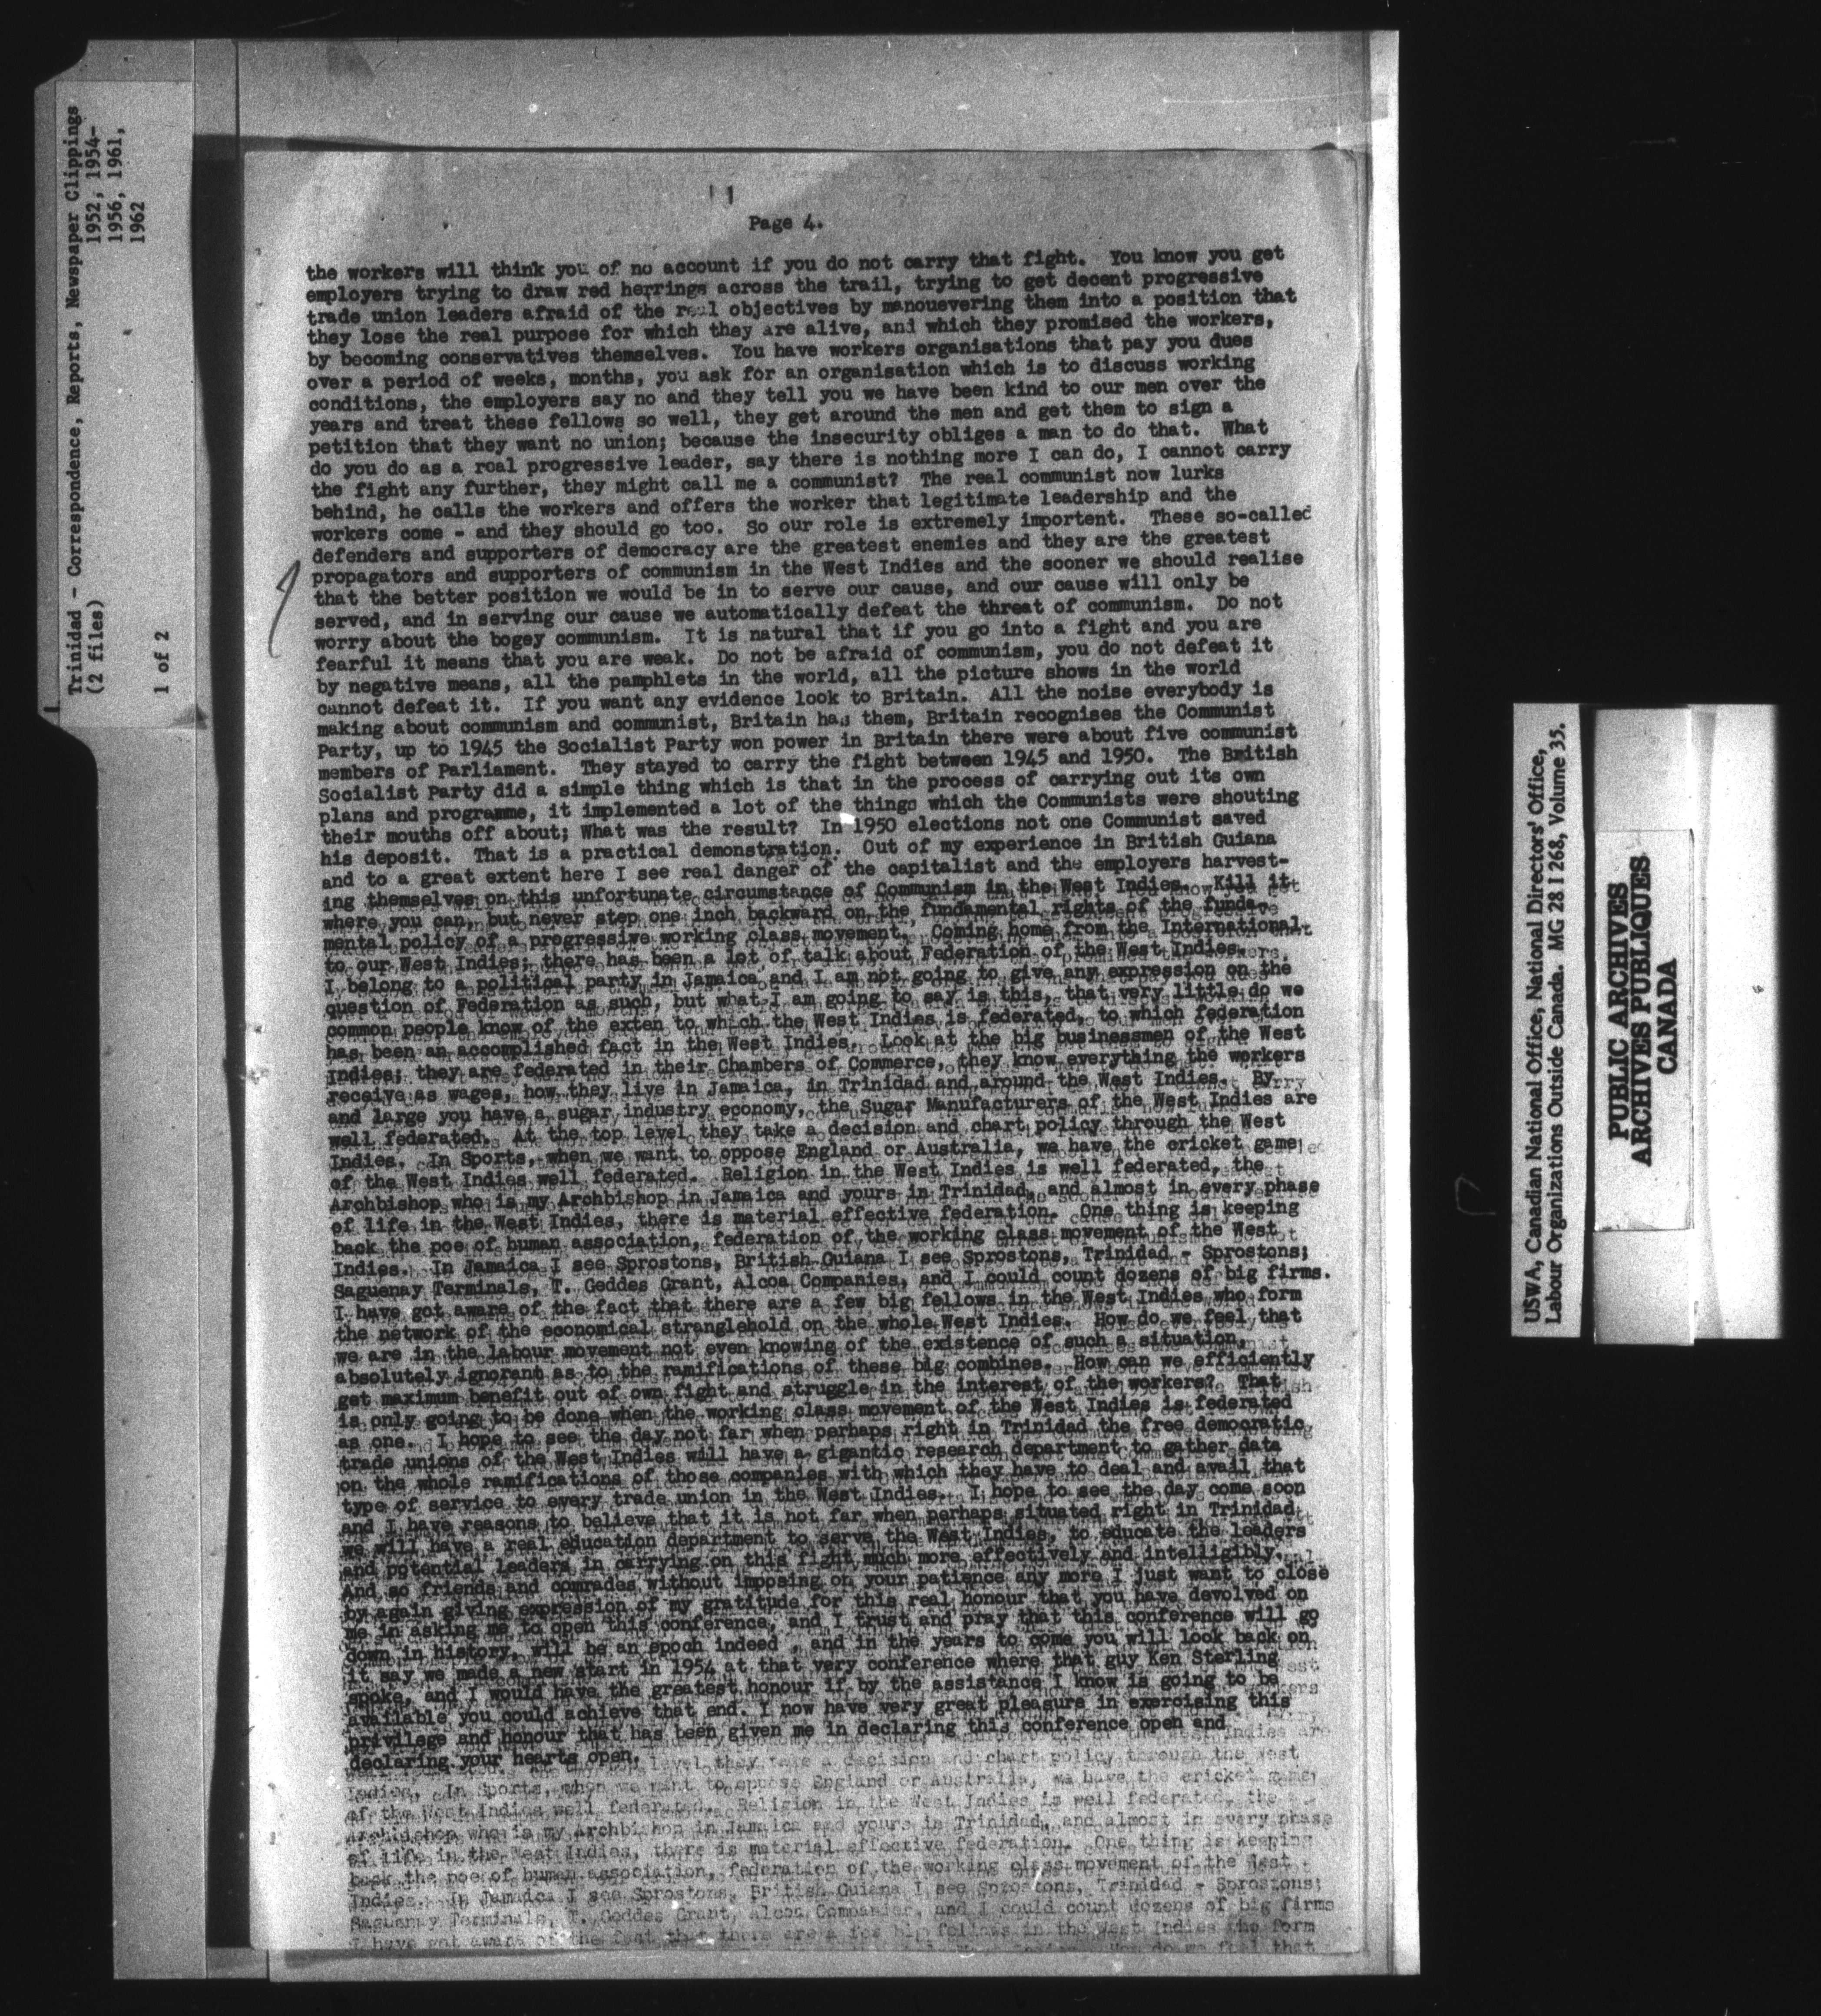 Trinidad - Correspondence, Reports, Newspaper Clippings
(2 files) 1952, 1954-
1956, 1961,
1962
1 of 2
Page 4.
the workers will think you of no account if you do not carry that fight. You know you get
employers trying to draw red herrings across the trail, trying to get decent progressive
trade union leaders afraid of the real objectives by manouevering them into a position that
they lose the real purpose for which they are alive, and which they promised the workers,
by becoming conservatives themselves. You have workers organisations that pay you dues
over a period of weeks, months, you ask for an organisation which is to discuss working
conditions, the employers say no and they tell you we have been kind to our men over the
years and treat these fellows so well, they get around the men and get them to sign a
petition that they want no union; because the insecurity obliges a man to do that. What
do you do as a real progressive leader, say there is nothing more I can do, I cannot carry
the fight any further, they might call me a communist? The real communist now lurks
behind, he calls the workers and offers the worker that legitimate leadership and the
workers come - and they should go too. So our role is extremely importent. These so-called
defenders and supporters of democracy are the greatest enemies and they are the greatest
propagators and supporters of communism in the West Indies and the sooner we should realise
that the better position we would be in to serve our cause, and our cause will only be
served, and in serving our cause we automatically defeat the threat of communism. Do not
worry about the bogey communism. It is natural that if you go into a fight and you are
fearful it means that you are weak. Do not be afraid of communism, you do not defeat it
by negative means, all the pamphlets in the world, all the picture shows in the world
cannot defeat it. If you want any evidence look to Britain. All the noise everybody is
making about communism and communist, Britain has them, Britain recognises the Communist
Party, up to 1945 the Socialist Party won power in Britain there were about five communist
members of Parliament. They stayed to carry the fight between 1945 and 1950. The British
Socialist Party did a simple thing which is that in the process of carrying out its own
plans and programme, it implemented a lot of the things which the Communists were shouting
their mouths off about; What was the result? In 1950 elections not one Communist saved
his deposit. That is a practical demonstration. Out of my experience in British Guiana
and to a great extent here I see real danger of the capitalist and the employers harvest-
ing themselves on this unfortunate circumstance of Communism in the West Indies. Kill it
where you can, but never step one inch backward on the fundamental rights of the funda-
mental policy of a progressive working class movement. Coming home from the International
to our West Indies; there has been a lot of talk about Federation of the West Indies.
I belong to a political party in Jamaica and I am not going to give any expression on the
question of Federation as such, but what I am going to say is this, that very little do we
common people know of the exten to which the West Indies is federated, to which federation
has been an accomplished fact in the West Indies. Look at the big businessmen of the West
Indies; they are federated in their Chambers of Commerce, they know everything the workers
receive as wages, how they live in Jamaica, in Trinidad and around the West Indies. By
and large you have a sugar industry economy, the Sugar Manufacturers of the West Indies are
well federated. At the top level they take a decision and chart policy through the West
Indies. In Sports, when we want to oppose England or Australia, we have the cricket game
of the West Indies well federated. Religion in the West Indies is well federated, the
Archbishop who is my Archbishop in Jamaica and yours in Trinidad, and almost in every phase
of life in the West Indies, there is material effective federation. One thing is keeping
back the poe of human association, federation of the working class movement of the West
Indies. In Jamaica I see Sprostons, British Guiana I see Sprostons, Trinidad - Sprostons;
Saguenay Terminals, T. Geddes Grant, Alcoa Companies, and I could count dozens of big firms.
I have got aware of the fact that there are a few big fellows in the West Indies who form
the network of the economical stranglehold on the whole West Indies. How do we feel that
we are in the labour movement not even knowing of the existence of such a situation,
absolutely ignorant as to the ramifications of these big combines. How can we efficiently
get maximum benefit out of own fight and struggle in the interest of the workers? That
is only going to be done when the working class movement of the West Indies is federated
as one. I hope to see the day not far when perhaps right in Trinidad the free democratic
trade unions of the West Indies will have a gigantic research department to gather data
on the whole ramifications of those companies with which they have to deal and avail that
type of service to every trade union in the West Indies. I hope to see the day come soon
and I have reasons to believe that it is not far when perhaps situated right in Trinidad
we will have a real education department to serve the West Indies, to educate the leaders
and potential leaders in carrying on this fight much more effectively and intelligibly.
And so friends and comrades without imposing on your patience any more I just want to close
by again giving expression of my gratitude for this real honour that you have devolved on
me in asking me to open this conference, and I trust and pray that this conference will go
down in history, will be an epoch indeed, and in the years to come you will look back on
it say we made a new start in 1954 at that very conference where that guy Ken Sterling
spoke, and I would have the greatest honour if by the assistance I know is going to be
available you could achieve that end. I now have very great pleasure in exercising this
privilege and honour that has been given me in declaring this conference open and
declaring your hearts open.
level they take a decision and chart policy through the West
Indies. In Sports, when we want to oppose England or Australia, we have the cricket game
of the West Indies well federated. Religion in the West Indies is well federated, the
Archbishop who is my Archbishop in Jamaica and yours in Trinidad, and almost in every phase
of life in the West Indies, there is material effective federation. One thing is keeping
back the poe of human association, federation of the working class movement of the West
Indies. In Jamaica I see Sprostons, British Guiana I see Sprostons, Trinidad - Sprostons;
Saguenay Terminals, T. Geddes Grant, Alcoa Companies, and I could count dozens of big firms
I have got aware of the fact that there are a few big fellows in the West Indies who form
How do we feel that
USWA, Canadian National Office, National Directors' Office,
Labour Organizations Outside Canada. MG 28 I 268, Volume 35.
PUBLIC ARCHIVES
ARCHIVES PUBLIQUES
CANADA